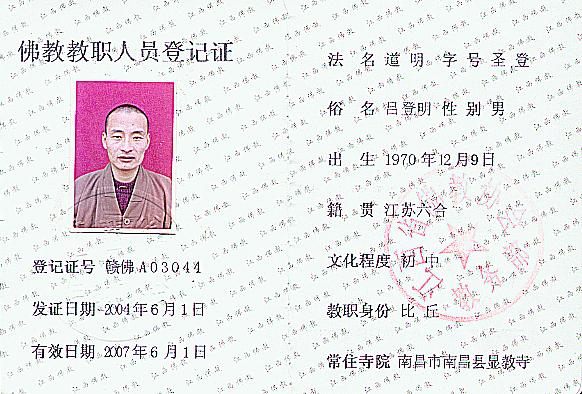 佛教教职人员登记证
登记证号 赣佛A03044
发证日期 2004年6月1日
有效日期 2007年6月1日
法 名 道 明 字 号 圣 登
俗 名 吕登明 性 别 男
出 生 1970年12月9日
籍 贯 江苏六合
文化程度 初 中
教职身份 比 丘
常住寺院 南昌市南昌县显教寺
江西佛教
教务部